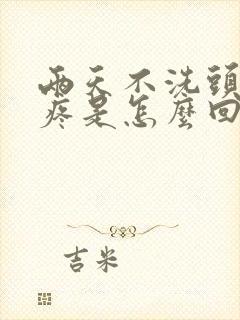 兩天不洗頭
疼是怎麼回
吉米